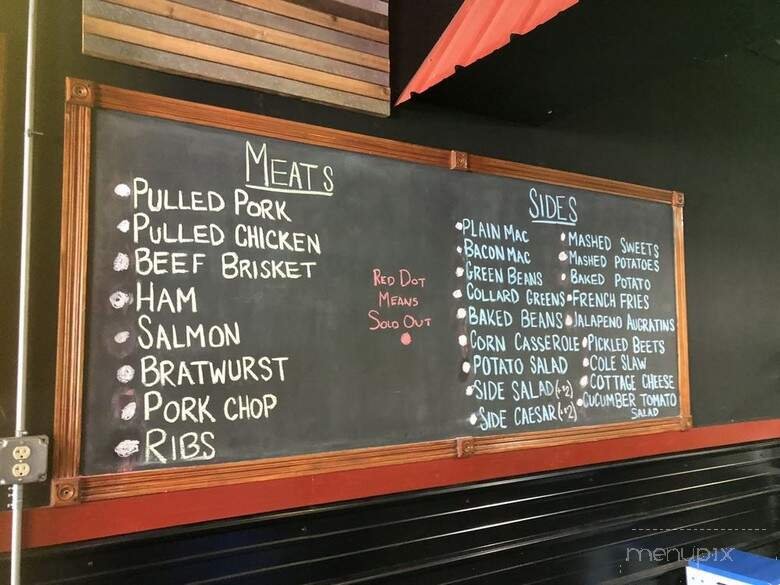 MEATS
PULLED PORK
PULLED CHICKEN
BEEF BRISKET
HAM
SALMON
BRATWURST
PORK CHOP
RIBS
RED DOT
MEANS
SOLD OUT
SIDES
PLAIN MAC
BACON MAC
GREEN BEANS
COLLARD GREENS
BAKED BEANS
CORN CASSEROLE
POTATO SALAD
SIDE SALAD (+$2)
SIDE CAESAR (+$2)
MASHED SWEETS
MASHED POTATOES
BAKED POTATO
FRENCH FRIES
JALAPENO AUGRATINS
PICKLED BEETS
COLE SLAW
COTTAGE CHEESE
CUCUMBER TOMATO
SALAD
menupix